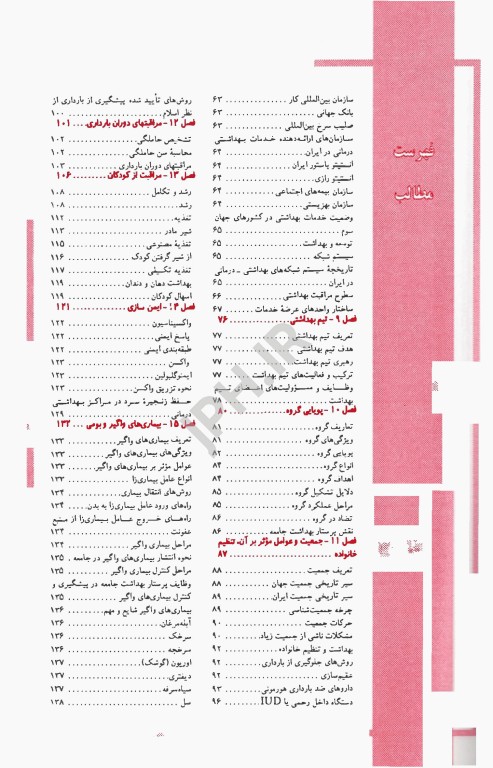 فهرست
مطالب
سازمان بین‌المللی کار ............... ۶۳
بانک جهانی ............... ۶۳
صلیب سرخ بین‌المللی ............... ۶۳
سازمان‌های ارائه‌دهنده خدمات بهداشتی
درمانی در ایران ............... ۶۴
انستیتو پاستور ایران ............... ۶۴
انستیتو رازی ............... ۶۴
سازمان بیمه‌های اجتماعی ............... ۶۴
سازمان بهزیستی ............... ۶۴
وضعیت خدمات بهداشتی در کشورهای جهان
سوم ............... ۶۵
توسعه و بهداشت ............... ۶۵
سیستم شبکه ............... ۶۵
تاریخچهٔ سیستم شبکه‌های بهداشتی ـ درمانی
در ایران ............... ۶۵
سطوح مراقبت بهداشتی ............... ۶۶
ساختار واحدهای عرضهٔ خدمات ............... ۶۷
فصل ۹ - تیم بهداشتی ............... ۷۶
تعریف تیم بهداشتی ............... ۷۷
هدف تیم بهداشتی ............... ۷۷
رهبری تیم بهداشت ............... ۷۷
ترکیب و فعالیت‌های تیم بهداشت ............... ۷۷
وظایف و مسؤولیت‌های اعضای تیم
بهداشت ............... ۷۸
فصل ۱۰ - پویایی گروه ............... ۸۰
تعاریف گروه ............... ۸۱
ویژگی‌های گروه ............... ۸۱
پویایی گروه ............... ۸۲
انواع گروه ............... ۸۴
اهداف گروه ............... ۸۴
دلایل تشکیل گروه ............... ۸۵
مراحل عملکرد گروه ............... ۸۵
تضاد در گروه ............... ۸۶
نقش پرستار بهداشت جامعه ............... ۸۶
فصل ۱۱ - جمعیت و عوامل مؤثر بر آن، تنظیم
خانواده ............... ۸۷
تعریف جمعیت ............... ۸۸
سیر تاریخی جمعیت جهان ............... ۸۸
سیر تاریخی جمعیت ایران ............... ۸۹
چرخه جمعیت‌شناسی ............... ۸۹
حرکات جمعیت ............... ۹۰
مشکلات ناشی از جمعیت زیاد ............... ۹۰
بهداشت و تنظیم خانواده ............... ۹۲
روش‌های جلوگیری از بارداری ............... ۹۲
عقیم‌سازی ............... ۹۲
داروهای ضد بارداری هورمونی ............... ۹۳
دستگاه داخل رحمی یا IUD ............... ۹۶
روش‌های تأیید شده پیشگیری از بارداری از
نظر اسلام ............... ۱۰۰
فصل ۱۲ - مراقبتهای دوران بارداری .... ۱۰۱
تشخیص حاملگی ............... ۱۰۲
محاسبهٔ سن حاملگی ............... ۱۰۲
مراقبتهای دوران بارداری ............... ۱۰۳
فصل ۱۳ - مراقبت از کودکان ............... ۱۰۶
رشد و تکامل ............... ۱۰۸
رشد ............... ۱۰۸
تغذیه ............... ۱۱۲
شیر مادر ............... ۱۱۳
تغذیهٔ مصنوعی ............... ۱۱۵
از شیر گرفتن کودک ............... ۱۱۶
تغذیه تکمیلی ............... ۱۱۷
بهداشت دهان و دندان ............... ۱۱۹
اسهال کودکان ............... ۱۱۹
فصل ۱۴ - ایمن سازی ............... ۱۲۱
واکسیناسیون ............... ۱۲۲
پاسخ ایمنی ............... ۱۲۲
طبقه‌بندی ایمنی ............... ۱۲۲
واکسن ............... ۱۲۳
ایمنوگلبولین ............... ۱۲۳
نحوه تزریق واکسن ............... ۱۲۳
حفظ زنجیرهٔ سرد در مراکز بهداشتی
درمانی ............... ۱۲۹
فصل ۱۵ - بیماری‌های واگیر و بومی ... ۱۳۲
تعریف بیماری‌های واگیر ............... ۱۳۳
ویژگی‌های بیماری‌های واگیر ............... ۱۳۳
عوامل مؤثر بر بیماری‌های واگیر ............... ۱۳۳
انواع عامل بیماری‌زا ............... ۱۳۳
روش‌های انتقال بیماری ............... ۱۳۴
راه‌های ورود عامل بیماری‌زا به بدن ............... ۱۳۴
راه‌های خروج عامل بیماری‌زا از منبع
عفونت ............... ۱۳۴
مراحل بیماری واگیر ............... ۱۳۴
نحوه انتشار بیماری‌های واگیر در جامعه . ۱۳۵
مراحل کنترل بیماری واگیر ............... ۱۳۵
وظایف پرستار بهداشت جامعه در پیشگیری و
کنترل بیماری‌های واگیر ............... ۱۳۵
بیماری‌های واگیر شایع و مهم ............... ۱۳۶
آبله‌مرغان ............... ۱۳۶
سرخک ............... ۱۳۶
سرخجه ............... ۱۳۶
اوریون (گوشک) ............... ۱۳۷
دیفتری ............... ۱۳۷
سیاه‌سرفه ............... ۱۳۷
سل ............... ۱۳۸
JPH.IR